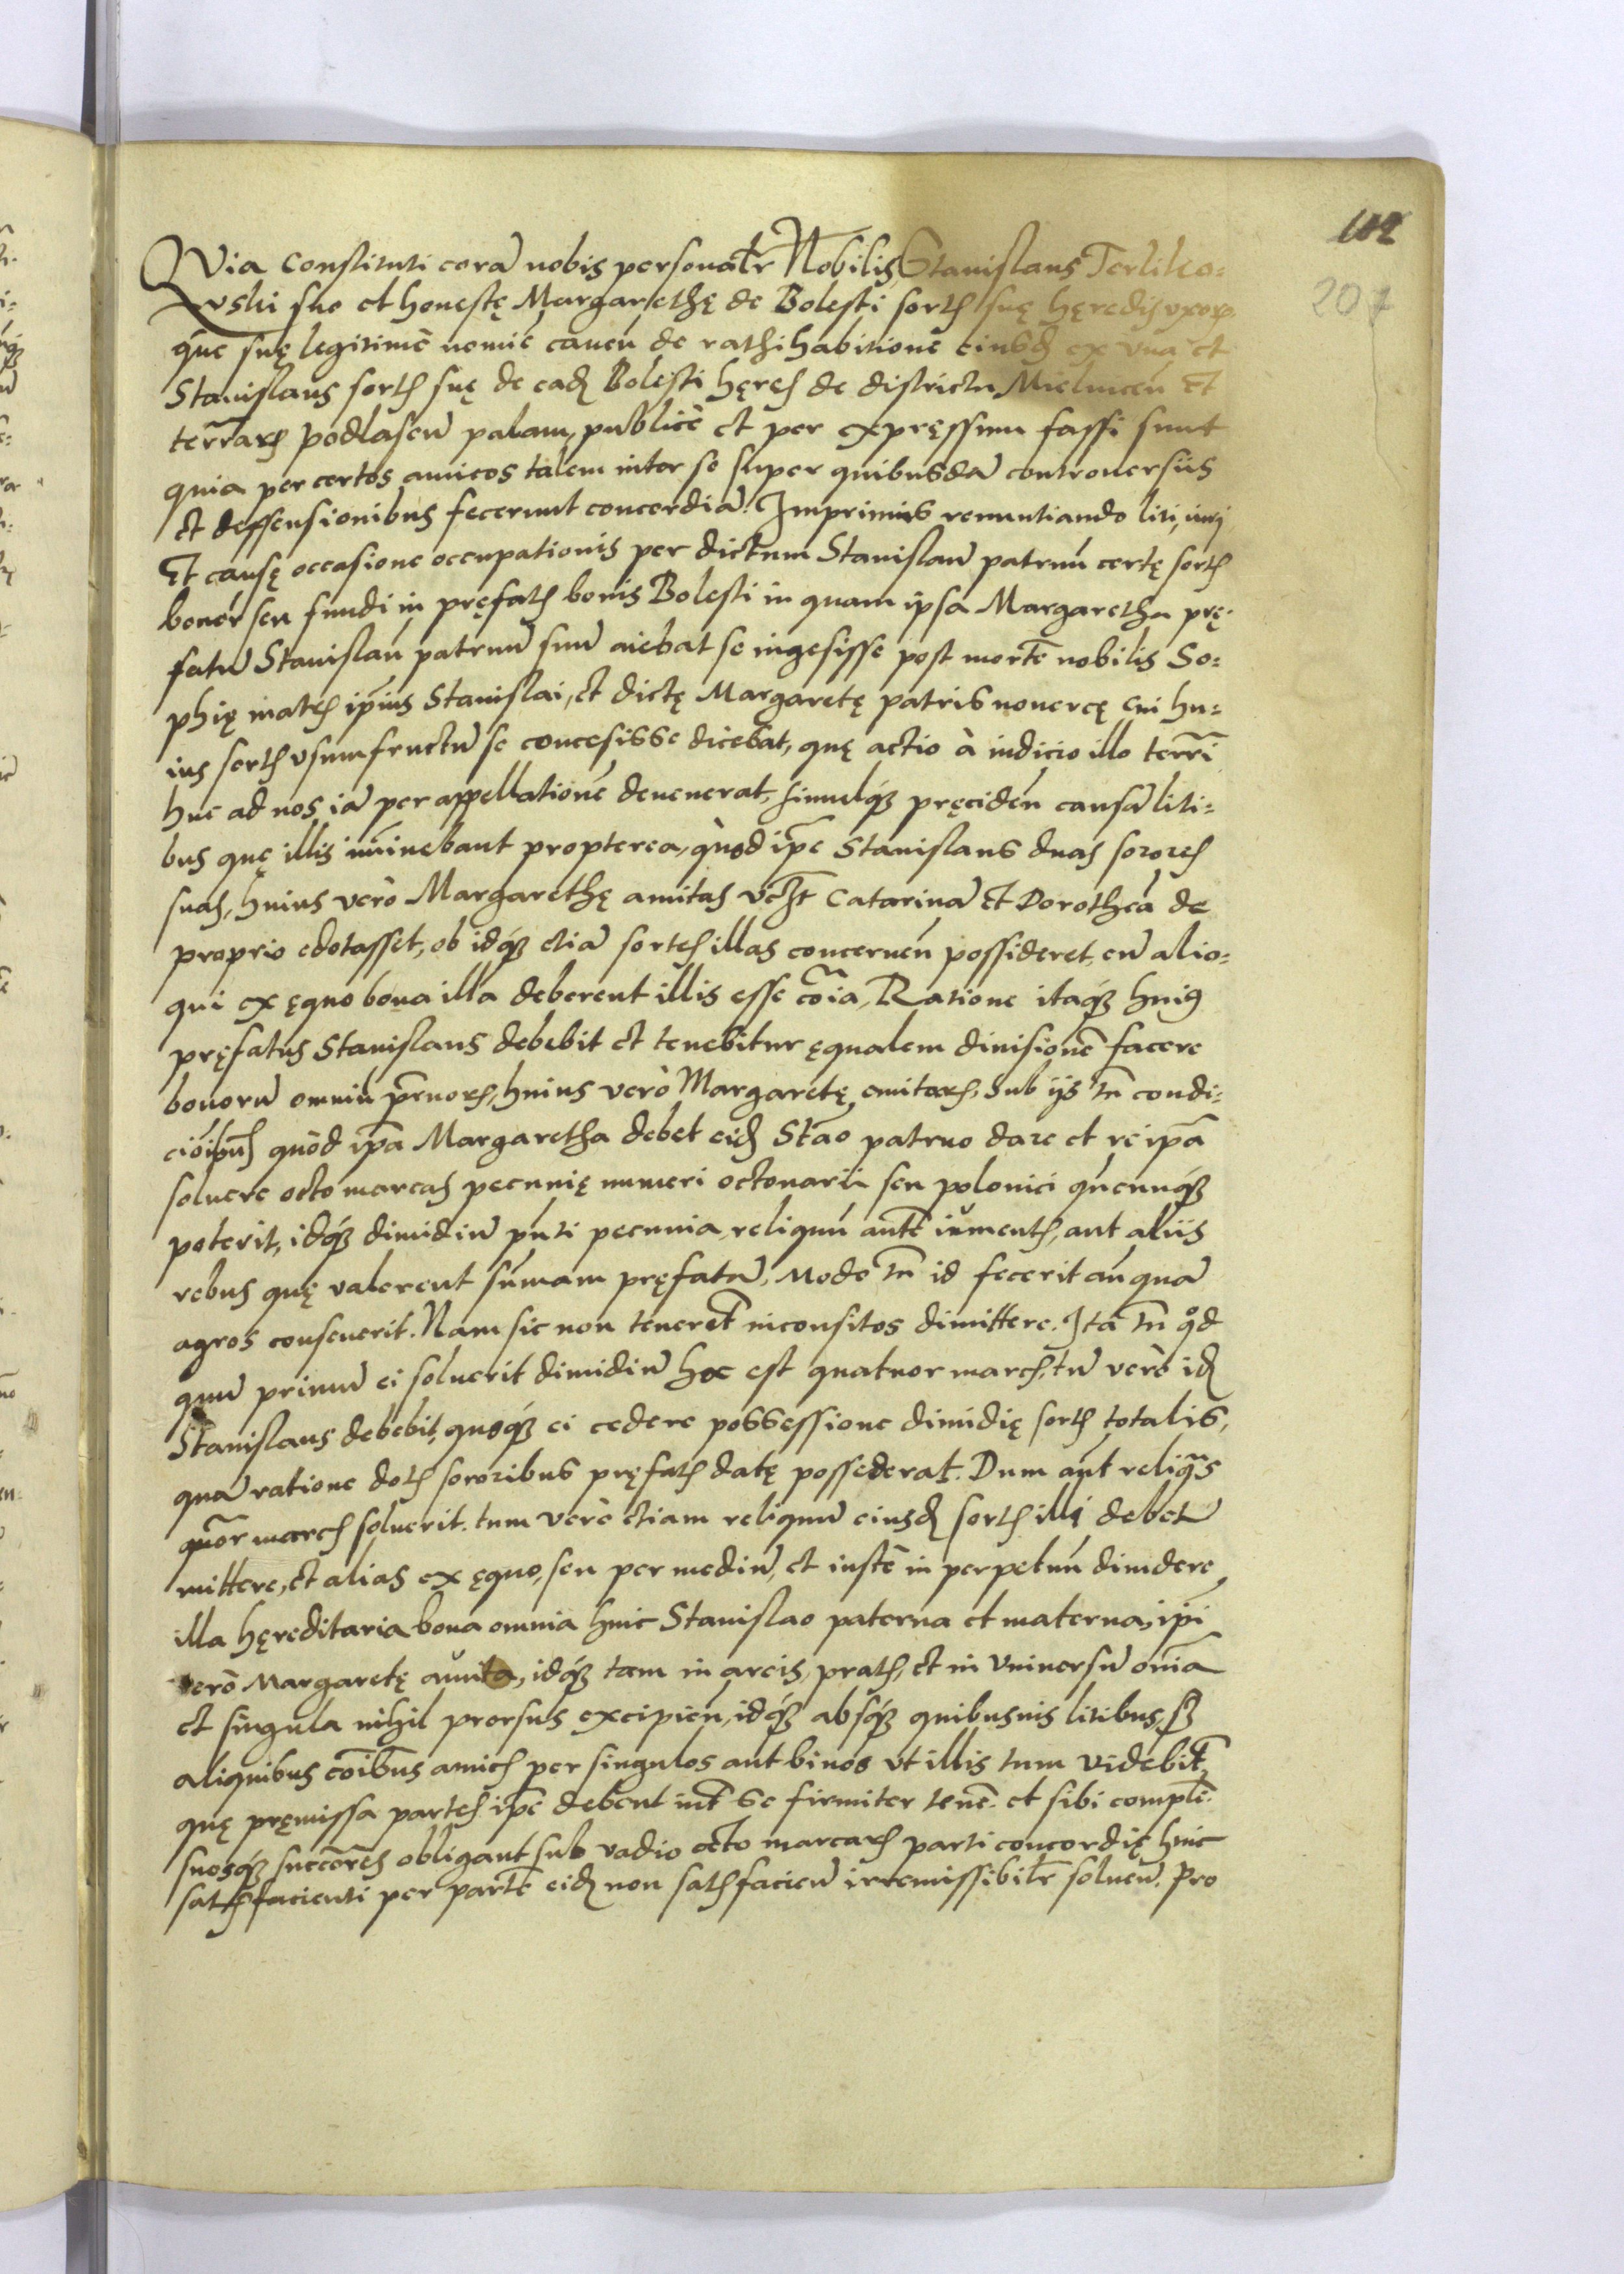 112
207
QVia Constituti corā nobis personalr̄ Nobilis Stanislaus Terliko=
vski suo et honestę Margarethę de Bolesti sortis suę hęredis vxoris
quē suę legitimę nomiē caueñ de rathihabitionē eiusd ex vna et
Stanislaus sortis suę de ead Bolesti hęres de districtu Mielniceñ Et
terrarum podlaseñ palam, publicè et per expręssum fassi sunt
quia per certos amicos talem inter se super quibusdā controuersiis
et deffensionibus fecerunt concordiā. Imprimis renuntiando liti, iuri
Et causę occasione occupationis per dictum Stanislaū patruū certę sortis
bonor̄ seu fundi in pręfatis bonis Bolesti in quam ipsa Margaretha prę=
fatū Stanislaū patruū suū aiebat se ingesisse post mortē nobilis So=
phię matris ip̄ius Stanislai, et dictę Margaretę patris nouercę cui hu=
ius sortis vsumfructū se concesisse dicebat, quę actio à iudicio illo terr̄i
huc ad nos iā per appellationē deuenerat, simulq pręcideñ causā liti=
bus quę illis iminebant propterea, quòd ip̄e Stanislaus duas sorores
suas, huius verò Margarethę amitas vczt Catarinā Et Dorotheā de
proprio edotasset, ob idq etiā sortes illas concerneñ possideret, cū alio=
qui ex ęquo bona illa deberent illis esse cōia, Ratione itaq huius
pręfatus Stanislaus debebit et tenebitur ęqualem diuisionē facere
bonorū omniū pr̄nor, huius verò Margaretę amitar, sub ijs tn̄ condi=
ciōibus quòd ip̄a Margaretha debet eid Stāo patruo dare et re ip̄a
soluere octo marcas pecunię numeri octonarii seu polonici qucunq
poterit, idq dimidiū pn̄ti pecunia reliquū autē iumentis, aut aliis
rebus quę valerent sum̄am pręfatā, Modo tn̄ id fecerit an̄quā
agros conseuerit. Nam sic non teneret̄ inconsitos dimittere. Ita tn̄ qd
quū primū ei soluerit dimidiū hoc est quatuor marcis, tū verò id
Stanislaus debebit, quoq ei cedere possessione dimidię sortis totalis,
quā ratione dotis sororibus pręfatis datę possederat. Dum aūt reliqas
quor̄ marcis soluerit. tum verò etiam reliquū eiusd sortis illi debet
mittere, et alias ex ęquo, seu per mediū, et iustè in perpetuū diuidere
illa hęreditaria bona omnia huic Stanislao paterna et materna, ip̄i
verò Margaretę auita, idq tam in areis, pratis, et in Vniuersū om̄ia
et singula nihil prorsus excipieñ, idq absq quibusuis litibus, sz
aliquibus cōibus amicis per singulos aut binos vt illis tum videbit̄,
quę pręmissa partes ip̄e debent int̄ se firmiter tenē. et sibi complē.
suosq succōres obligant sub vadio octo marcar parti concordię huic
satisfacienti per partē eid non satisfacieñ irremissibilr̄ solueñ. Pro